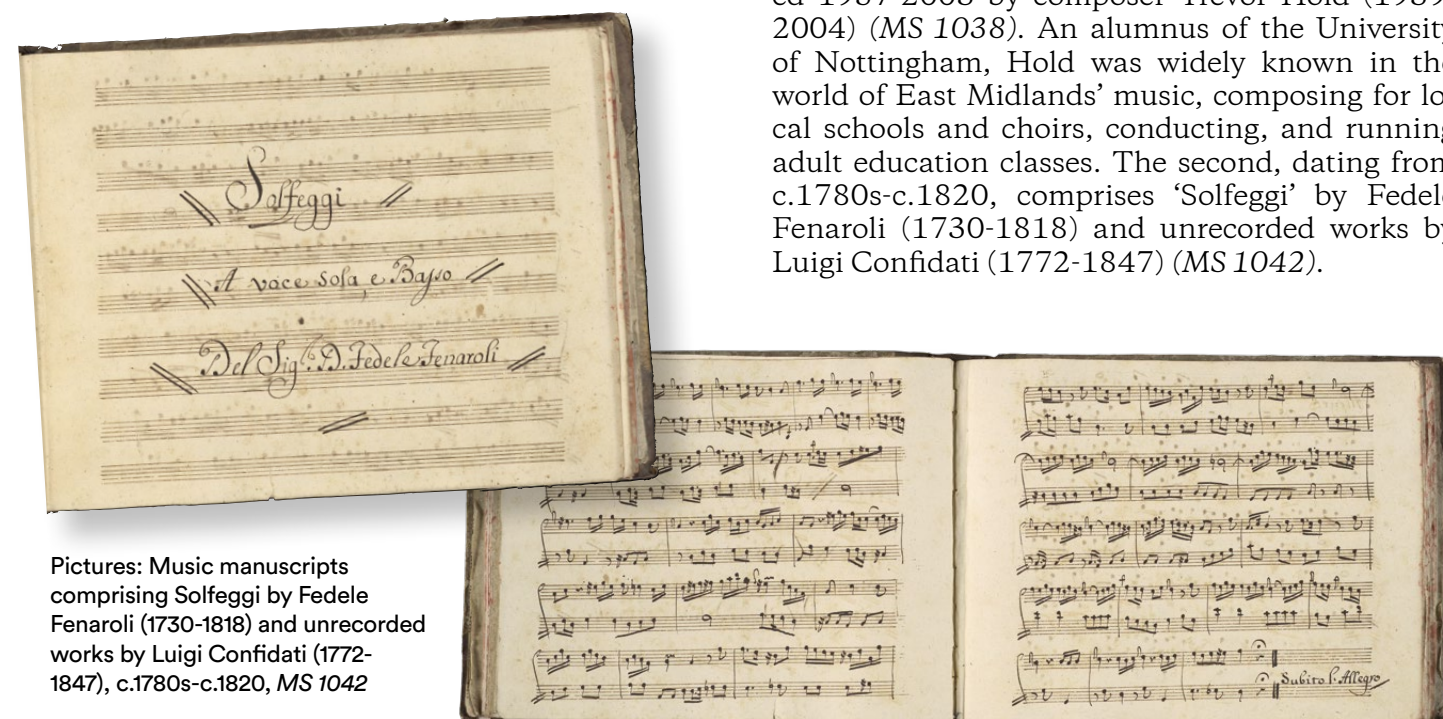 2004) (MS 1038). An alumnus of the University
of Nottingham, Hold was widely known in the
world of East Midlands’ music, composing for lo
cal schools and choirs, conducting, and running
adult education classes. The second, dating from
c.1780s-c.1820, comprises ‘Solfeggi’ by Fedele
Fenaroli (1730-1818) and unrecorded works by
Luigi Confidati (1772-1847) (MS 1042).
Solfeggi
A voce sola, e Basso
Del Sig. D. Fedele Fenaroli
Subito l'Allegro
Pictures: Music manuscripts
comprising Solfeggi by Fedele
Fenaroli (1730-1818) and unrecorded
works by Luigi Confidati (1772-
1847), c.1780s-c.1820, MS 1042